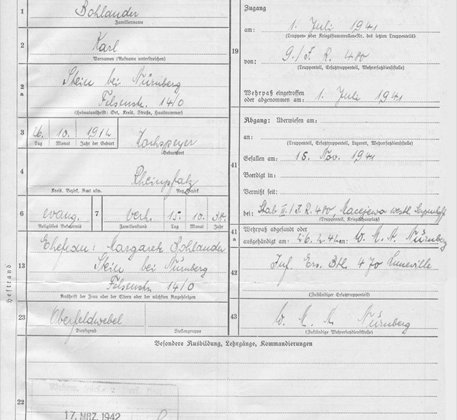 1 Bohlander
Familienname
2 Karl
Vornamen (Rufname unterstreichen)
Stein bei Nürnberg
Felsenstr. 14/0
(Heimatanschrift: Ort, Kreis, Straße, Hausnummer)
3 26. 10. 1914 Hochspeyer
Tag Monat Jahr der Geburt Geburtsort
4 Rheinpfalz
Kreis, Bezirk, Amt usw.
6 evang. 7 verh.
Religiöses Bekenntnis Familienstand Tag Monat Jahr
13 Ehefrau: Margaret Bohlander
Stein bei Nürnberg
Felsenstr. 14/0
Anschrift der Frau oder der Eltern oder der nächsten Angehörigen
23 Oberfeldwebel
Dienstgrad Stellengruppe
Heftrand
Zugang
am 1. Juli 1941
19 von 9./I.R. 480
(Truppenteil, Ersatztruppenteil, Wehrersatzdienststelle)
Wehrpaß eingetroffen
oder abgenommen am 1. Juli 1941
Abgang: Überwiesen am:
an:
(Truppenteil, Ersatztruppenteil, Lazarett, Wehrersatzdienststelle)
41 Gefallen am: 15. Nov. 1941
Beerdigt in
Vermißt seit:
bei: Stab III./I.R. 480,
Wehrpaß abgesandt oder
ausgehändigt am: 26.2.42 an: W.M.A. Nürnberg
42 Inf. Ers. Btl. 470 Luneville
(Zuständiger Ersatztruppenteil)
43 W. M. A. Nürnberg
(Zuständige Wehrersatzdienststelle)
Besondere Ausbildung, Lehrgänge, Kommandierungen
22
17. MRZ. 1942